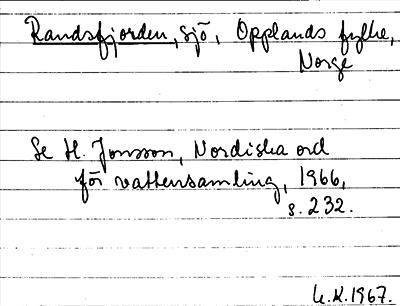 Randsfjorden, sjö, Opplands fylke,
Norge
Se H. Jonsson, Nordiska ord
för vattensamling, 1966,
s. 232.
L.K. 1967.